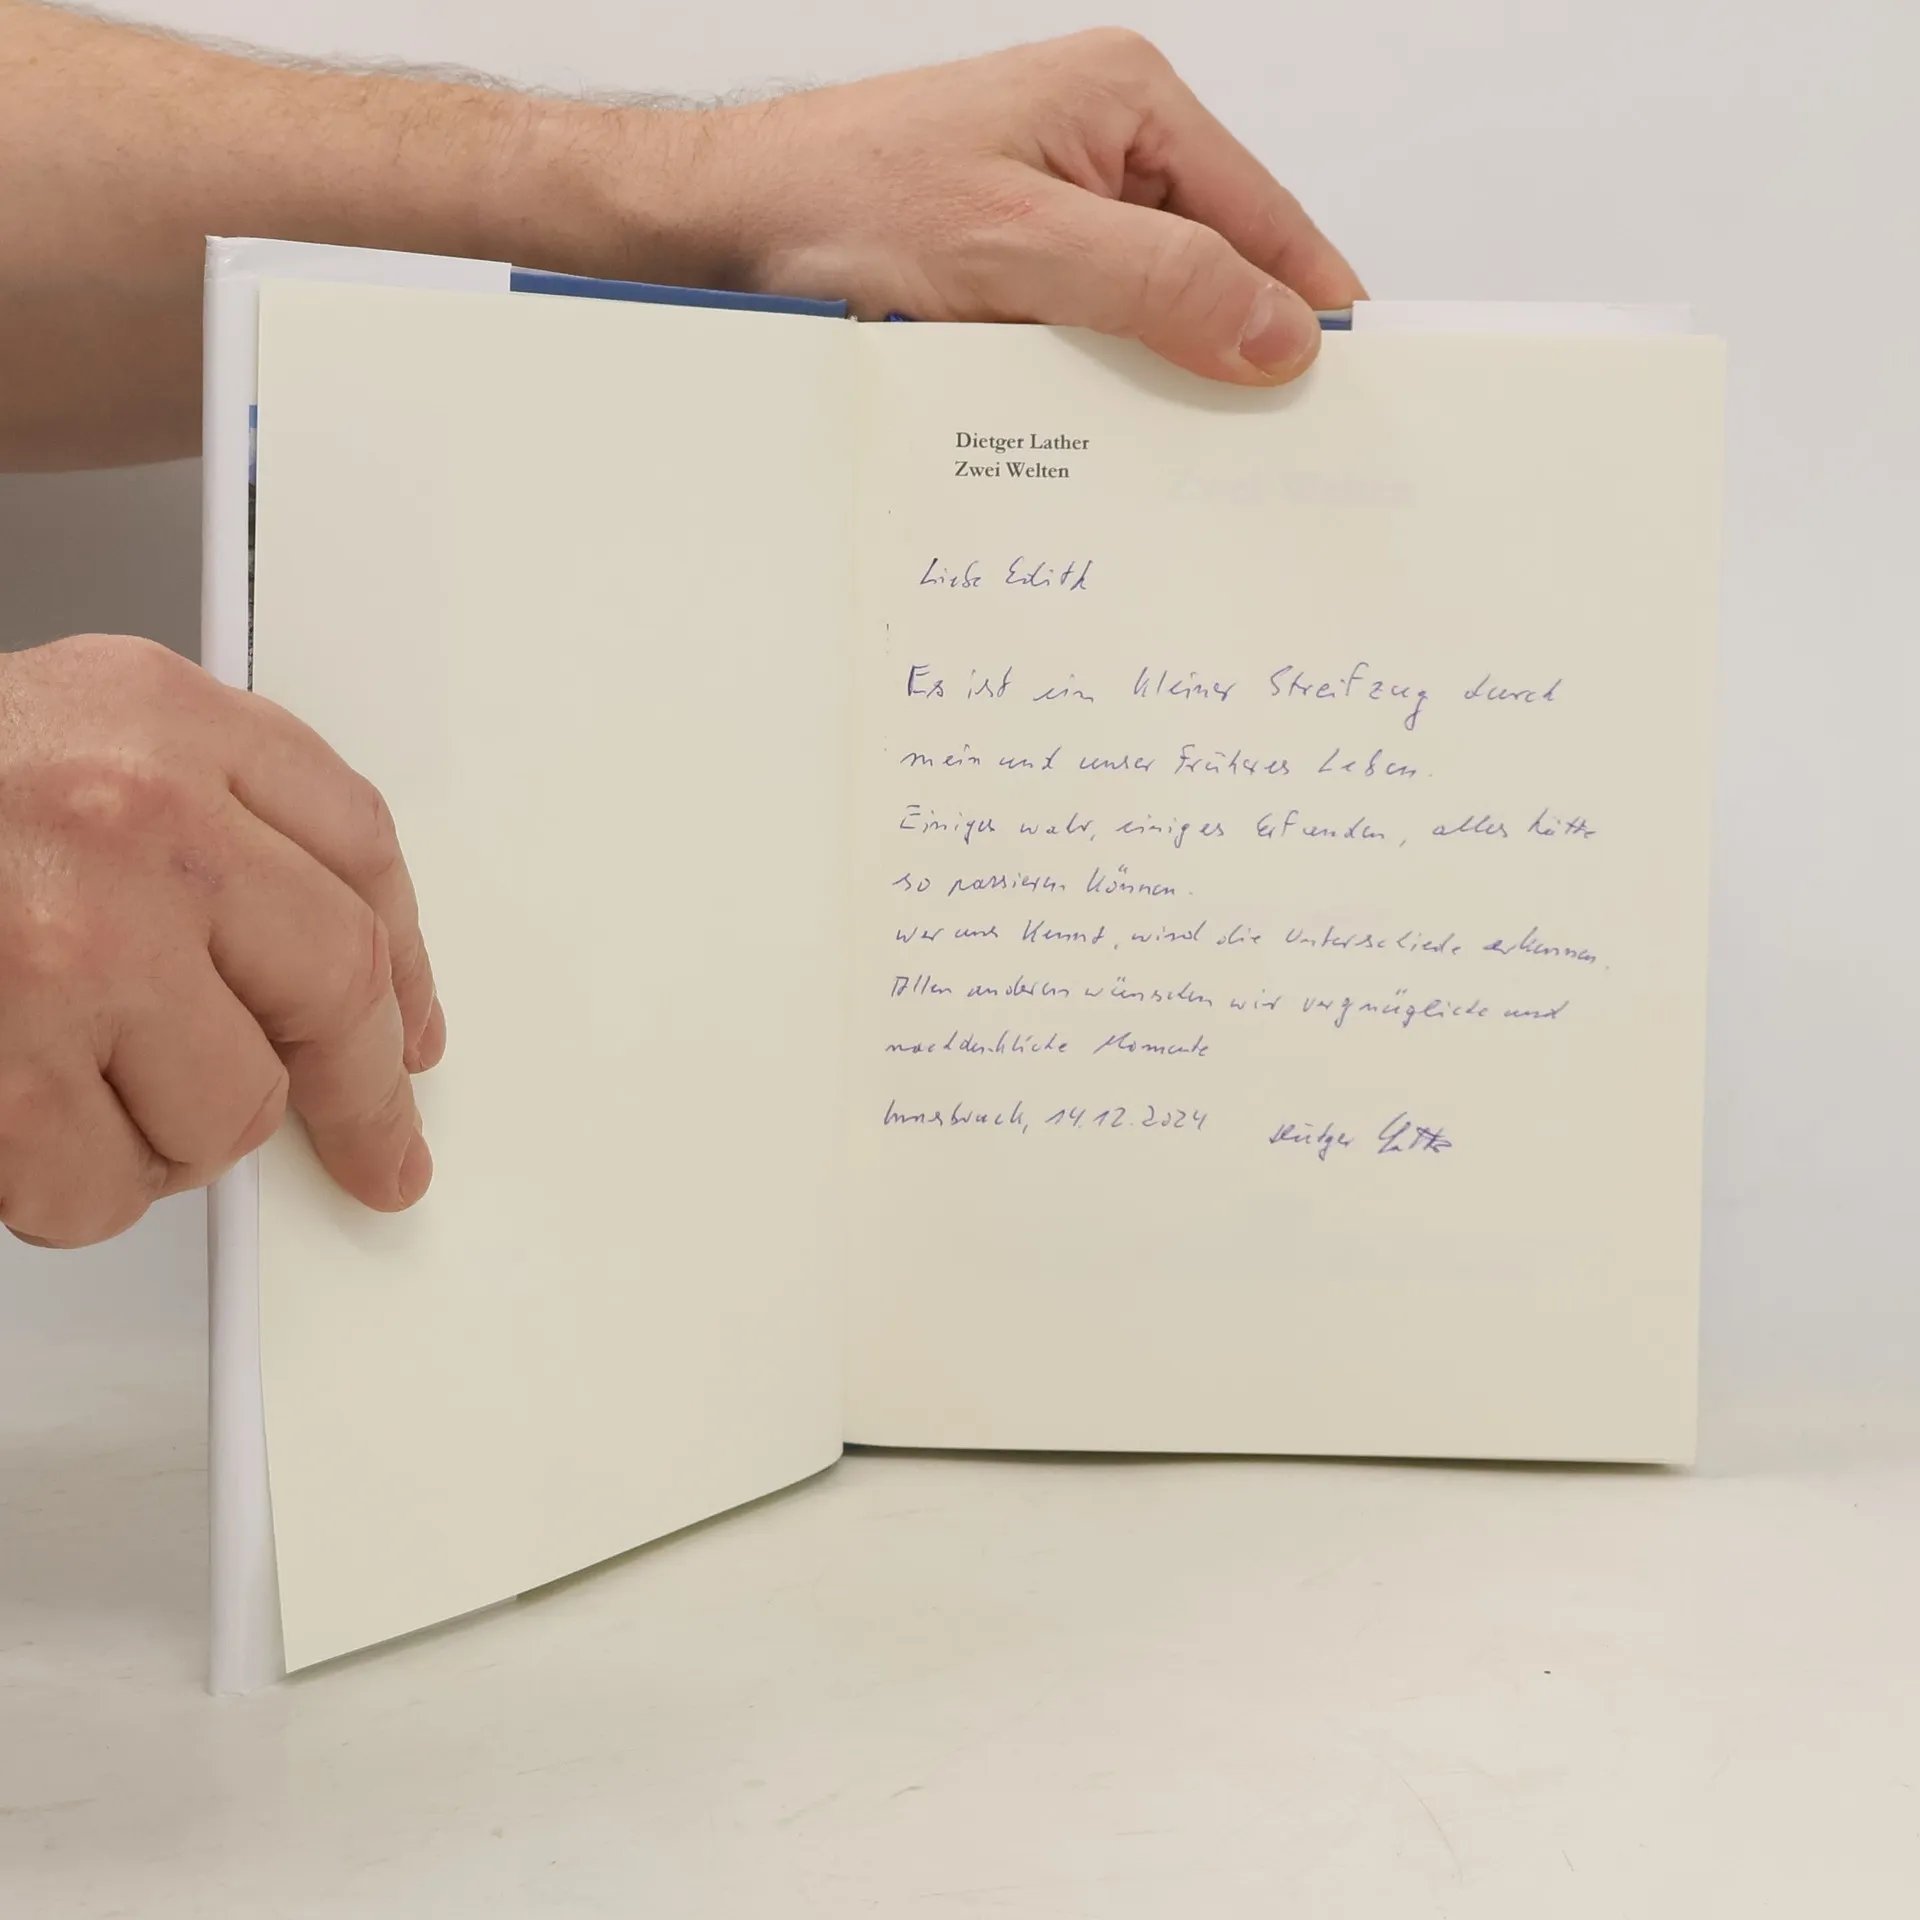 Dietger Lather
Zwei Welten
Liebe Edith
Es ist ein kleiner Streifzug durch
mein und unser früheres Leben.
Einiges wahr, einiges erfunden, alles hätte
so passieren können.
wer uns kennt, wird die Unterschiede erkennen.
Allen anderen wünschen wir vergnügliche und
nachdenkliche Momente
Innsbruck, 14.12.2024 Dietger Lather